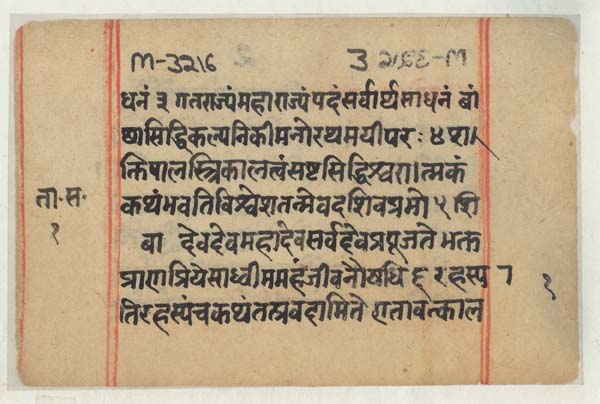 M-3216
धनं ३ गतराज्यंमहाराज्यंपदंसर्वार्थसाधनं वां
छासिद्धिकल्पनिकीमनोरथमयीपरः ४
कालत्वंसष्टसिद्धिश्वरात्मकं
कथंभवतिविश्वेशतन्मेवदशिवप्रभो ५ शि
वा देवदेवमहादेवसर्वदेवप्रपूजते भक्त
प्राणप्रियेसाध्वीममहंजीवनौषधि ६ रहस्य
तिरहस्यंचकथंतत्प्रवहामिते
ता.स.
१
१